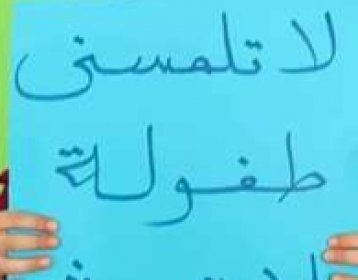 لا تلمسنى
طفولة